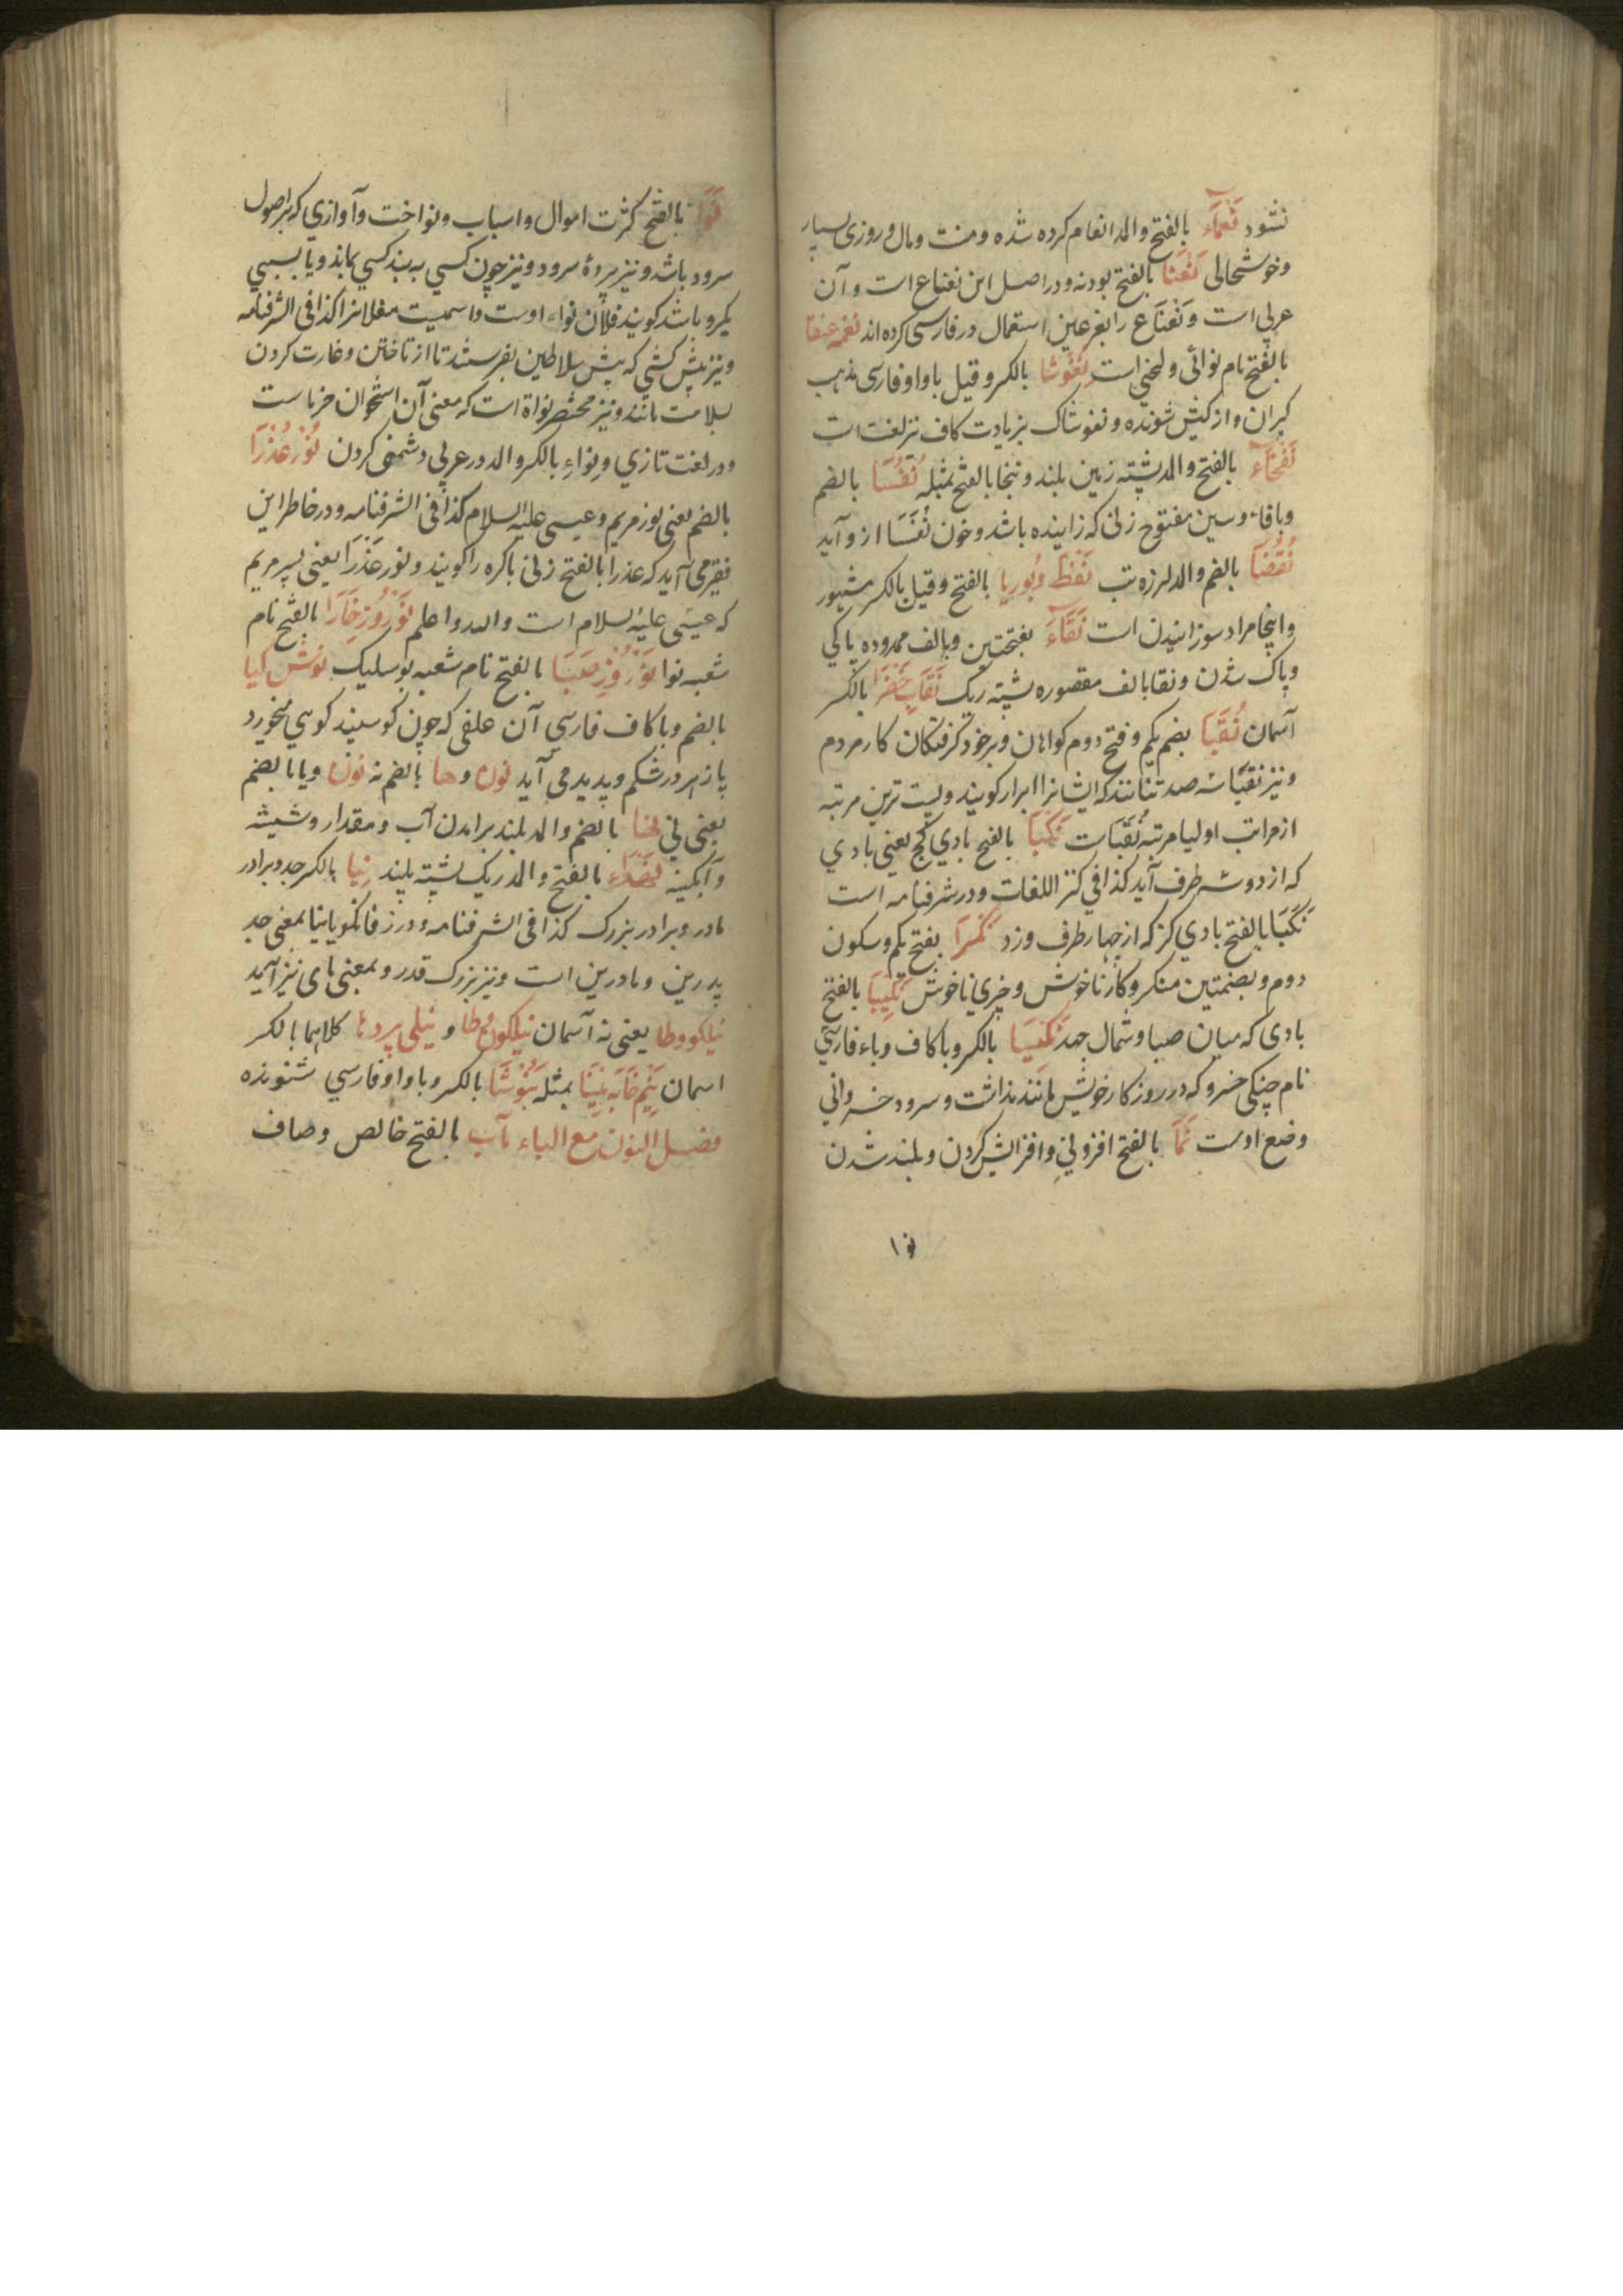 نشود نَعْمَآء بالفتح والمد انعام کرده شده ومنت ومال وروزی بسیار
وخوشحالی نَعْنَا بالفتح بودنه ودر اصل این نعناع است وآن
عربی است ونَعْنَاع را بغیر عین استعمال در فارسی کرده اند نغمه عنقا
بالفتح نام نوائی ولحنی است نغوشا بالکسر وقیل باواو فارسی مذهب
کبران واز کیش شونده ونغوشاک بزیادت کاف نیز لغت است
نَفْخَآء بالفتح والمد پشته زمین بلند ونبخا بالفتح بمثله نُفَسَا بالضم
وبافاء وسین مفتوح زنی که زاینده باشد وخون نُفَسَا ازو آید
نُفَضَا بالضم والمد لرزه تب نَفْط وبُوریا بالفتح وقیل بالکسر مشهور
واینجا مراد سوزانیدن است نَقَآء بفتحتین وبالف ممدوده پاکی
وپاک شدن ونقا بالف مقصوره پشته ریک نقاب خَضْرا بالکسر
آسمان نُقَبَا بضم یکم وفتح دوم کواهان وبرخود گرفتگان کار مردم
ونیز نقبا سه صد تنانند که ایشانرا ابرار کویند وپست ترین مرتبه
از مراتب اولیا مرتبه نُقَبَاست نَکْبَا بالفتح بادي کج یعنی بادي
که از دوسه طرف آید کذا فی کنز اللغات ودر شرفنامه است
نَکْبَا بالفتح بادي کز که از چهار طرف وزد نَکْرَا بفتح یکم وسکون
دوم وبضمتین منکر وکار ناخوش وخبری ناخوش نکیبا بالفتح
بادی که میان صبا وشمال جهد نکیسا بالکسر وباکاف وباء فارسی
نام چنکی خسرو که در روز کار خویش مانند نداشت وسرود خسروانی
وضع اوست نَمَا بالفتح افزونی وافزایش کردن وبلند شدن
نوا
نَوَا بالفتح کثرت اموال واسباب ونواخت وآوازی که بر اصول
سرود باشد ونیز پردهٔ سرود ونیز چون کسی به بند کسي بماند ویا بسببي
یکرو باشد کویند فلان نواء اوست واسمیت مغلانرا کذا فی الشرفنامه
ونیز پیش کشی که پیش سلاطین بفرستند تا از تاختن وغارت کردن
بسلامت مانند ونیز مختصر نواة است که معنی آن استخوان خرماست
ودر لغت تازي ونِواءِ بالکسر والمد در عربی دشمنی کردن نُوْرِ عَذْرَا
بالضم یعنی نور مریم وعیسی علیه السلام کذا فی الشرفنامه ودر خاطر این
فقیر می آید که عذرا بالفتح زنی باکره را کویند ونور عَذْرَا یعنی پسر مریم
که عیسی علیه السلام است والله واعلم نَوْرُوزِ خَارَا بالفتح نام
شعبه نوا نَوْرُوْزِ صَبَا بالفتح نام شعبه بوسلیک نوش کیا
بالضم وباکاف فارسی آن علفی که چون کوسپند کوهی میخورد
پازهر در شکم وپدید می آید نون وها بالضم نه نون ویا بالضم
یعنی نی نها بالضم والمد بلند برامدن آب ومقدار وشیشه
وآبکینه نهداء بالفتح والمد ریک پشته بلند نِیا بالکسر جد وبرادر
مادر وبرادر بزرک کذا فی الشرفنامه ودر زفانکویا نیا بمعنی جد
پدرین ومادرین است ونیز بزرک قدر وبمعنی مای نیز آمد
نیلکو وطا یعنی نه آسمان نیلکون وطا ونیلی پردها کلاهما بالکسر
اسمان نِیْم خَایَه مِیْنَا بمثله نیوشا بالکسر وباواو فارسي شنونده
فصل النون مع الباء نآب بالفتح خالص وصاف